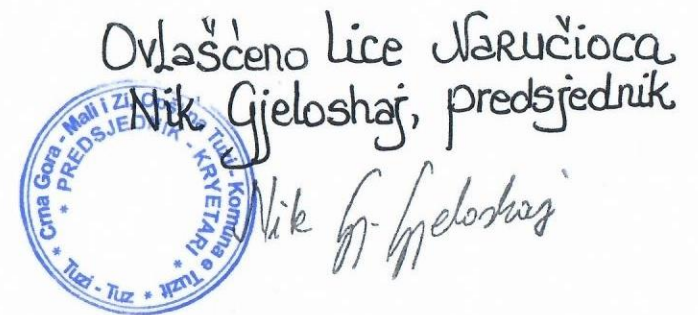 Ovlašćeno lice Naručioca
Nik Gjeloshaj, predsjednik
Crna Gora - Mali i Zi, Opština Tuzi - Komuna e Tuzit
* PREDSJEDNIK - KRYETARI *
* Tuzi - Tuz *
Nik Gj. Gjeloshaj